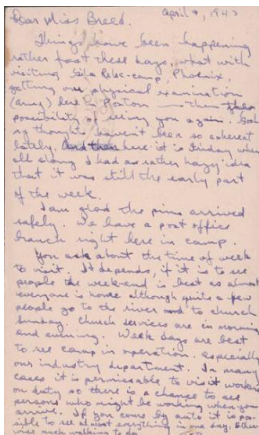 April 9, 1943
Dear Miss Breed,
Things have been happening
rather fast these days, what with
visiting Gila Relo-camp, Phoenix,
getting our physical examination
(army) here in Poston — then the
possibility of seeing you again.
my thoughts haven't been so coherent
lately. And then here it is Friday when
all along I had a rather hazy idea
that it was still the early part
of the week.
I am glad the pins arrived
safely. We have a post office
branch right here in camp.
You ask about the time of week
to visit. It depends, if it is to see
people the week-end is best as almost
everyone is home although quite a few
people go to the river and to church
Sunday. Church services are in morning
and evening. Week days are best
to see camp in operation, especially
our industry department. In many
cases it is permissable to visit workers
on duty, so there is a chance to see
persons who might be working when you
arrive. If you come by auto it is pos-
sible to see almost everything in one day. Other-
wise much walking to do.